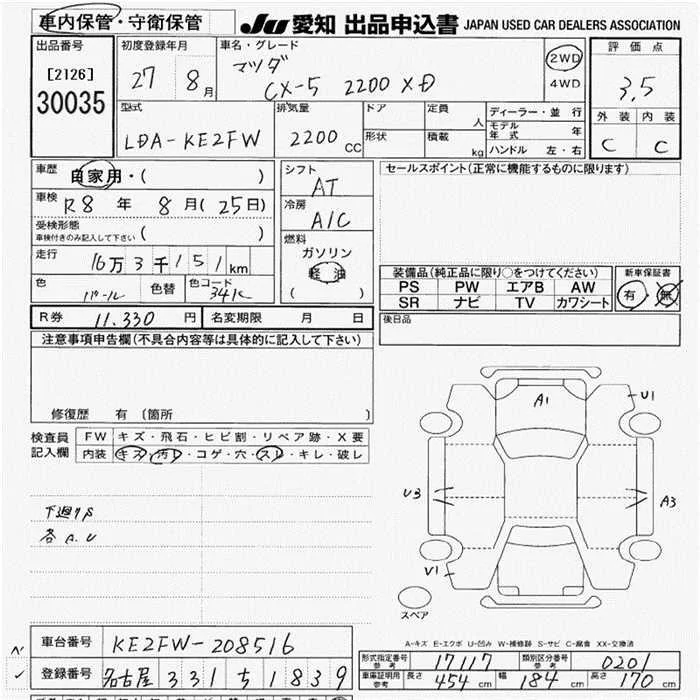 車内保管・守衛保管
JU 愛知 出品申込書 JAPAN USED CAR DEALERS ASSOCIATION
出品番号
[2126]
30035
初度登録年月
27 8月
車名・グレード
マツダ
CX-5 2200 XD
2WD
4WD
評価点
3.5
外装 内装
C C
型式
LDA-KE2FW
排気量
2200 CC
ドア
形状
定員 人
積載 kg
ディーラー・並行
モデル年式 年
ハンドル 左・右
車歴 自家用・( )
車検 R8年 8月(25日)
受検形態
車検付きのみ記入して下さい ( )
走行 16万3千151km
色 パール 色替 色コード 34K
シフト AT
冷房 A/C
燃料
ガソリン
軽油
( )
セールスポイント(正常に機能するものに限ります)
装備品(純正品に限り○をつけてください)
PS PW エアB AW
SR ナビ TV カワシート
新車保証書
有・無
後日品
R券 11.330円 名変期限 月 日
注意事項申告欄(不具合内容等は具体的に記入して下さい)
修復歴 有 [箇所 ]
検査員記入欄
FW キズ・飛石・ヒビ割・リペア跡・X要
内装 キズ・汚レ・コゲ・穴・スレ・キレ・破レ
下廻りS
各A.U
A1
U1
U3
A3
U1
スペア
A-キズ E-エクボ U-凹み W-補修跡 S-サビ C-腐食 XX-交換済
車台番号 KE2FW-208516
登録番号 名古屋 331 ち 1839
形式指定番号 参考 17117 類別区分番号 参考 0201
車庫証明用 参考 長さ 454cm 幅 184cm 高さ 170cm